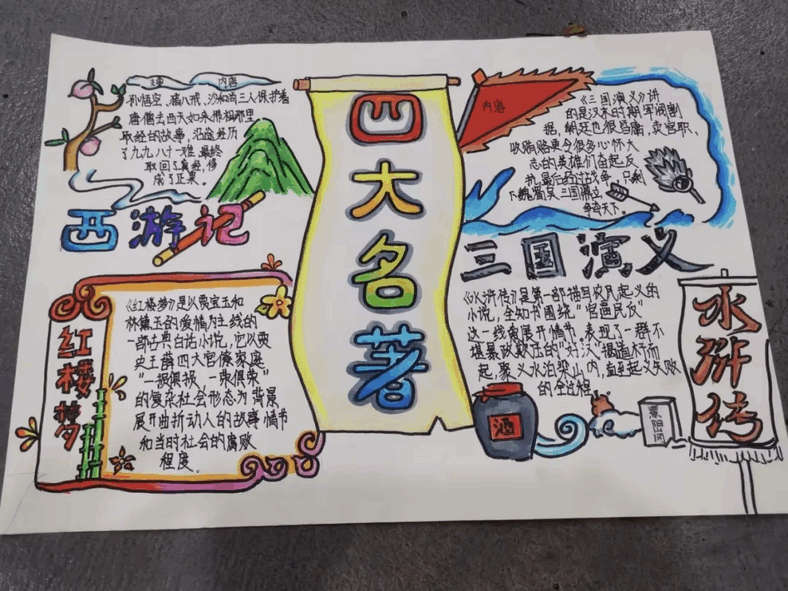 四大名著
主要 内容
孙悟空、猪八戒、沙和尚三人保护着
唐僧去西天如来佛祖那里
取经的故事，沿途经历
了九九八十一难，最终
取回了真经，修
成了正果。
西游记
内容
《三国演义》讲
的是汉末时期军阀割
据，朝廷也很昏庸，卖官职，
收贿赂更令很多心怀大
志的英雄们奋起反
抗，最后经过战争，只剩
下魏蜀吴三国鼎立
争夺天下。
三国演义
《红楼梦》是以贾宝玉和
林黛玉的爱情为主线的
一部古典白话小说，它以贾
史王薛四大官僚家庭
“一损俱损，一荣俱荣”
的复杂社会形态为背景
展开曲折动人的故事情节
和当时社会的腐败
程度。
红楼梦
《水浒传》是第一部描写农民起义的
小说，全知书围绕“官逼民反”
这一线索展开情节，表现了一群不
堪暴政欺压的“好汉”揭道杆而
起，聚义水泊梁山内，直至起义失败
的全过程
水浒传
酒
景阳山冈